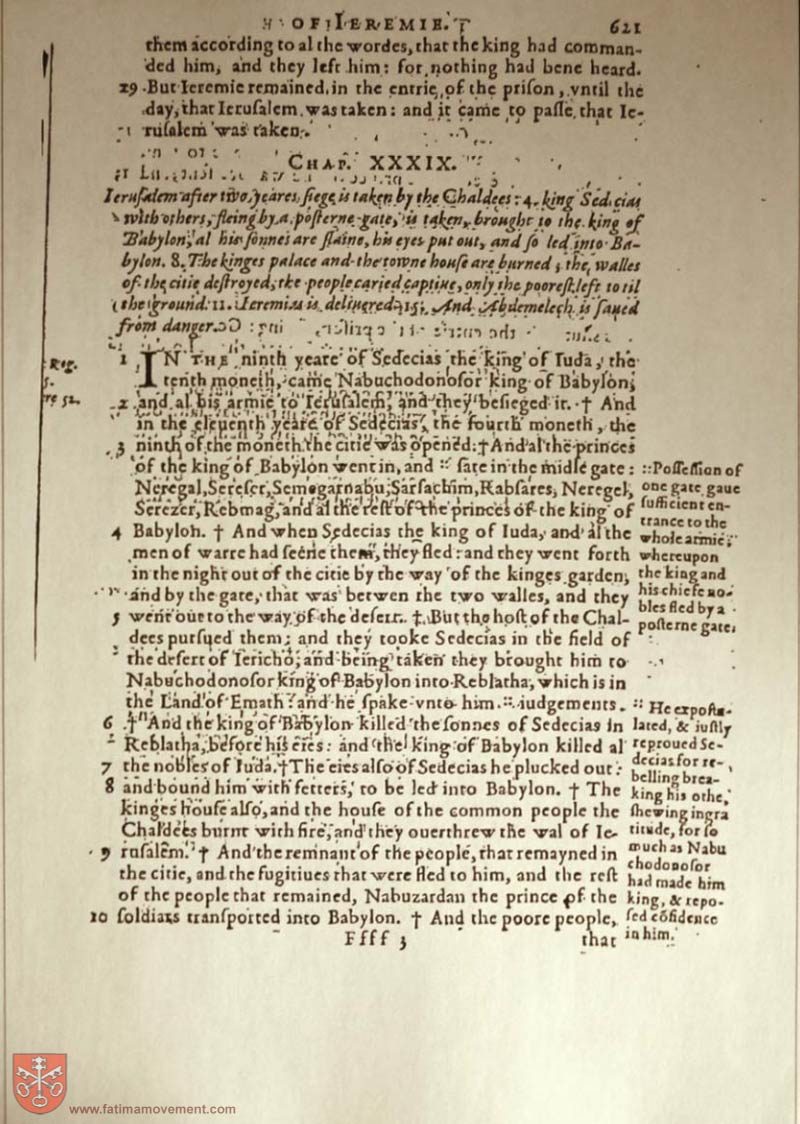 OF IEREMIE. 621
them according to al the wordes, that the king had comman-
ded him, and they left him: for nothing had bene heard.
29 But Ieremie remained in the entrie of the prison, vntil the
day, that Ierusalem was taken: and it came to passe, that Ie-
rusalem was taken.
CHAP. XXXIX.
Ierusalem after two yeares siege is taken by the Chaldees: 4. king Sedecias
with others, fleing by a posterne gate, is taken, brought to the king of
Babylon, al his sonnes are slaine, his eyes put out, and so led into Ba-
bylon. 8. The kinges palace and the towne house are burned, the walles
of the citie destroyed, the people caried captiue, only the poorest left to til
the ground. 11. Ieremias is deliuered, 15. And Abdemelech is saued
from danger.
1 IN THE ninth yeare of Sedecias the king of Iuda, the
tenth moneth, came Nabuchodonosor king of Babylon,
2 and al his armie to Ierusalem, and they besieged it. † And
in the eleuenth yeare of Sedecias, the fourth moneth, the
3 ninth of the moneth the citie was opened: † And al the princes
of the king of Babylon went in, and :: sate in the midle gate:
Neregal, Sereser, Semegarnabu, Sarsachim, Rabsares, Neregel,
Serezer, Rebmag, and al the rest of the princes of the king of
4 Babylon. † And when Sedecias the king of Iuda, and al the
men of warre had seene them, they fled: and they went forth
in the night out of the citie by the way of the kinges garden,
and by the gate, that was betwen the two walles, and they
5 went out to the way of the desert. † But the host of the Chal-
dees pursued them; and they tooke Sedecias in the field of
the desert of Iericho, and being taken they brought him to
Nabuchodonosor king of Babylon into Reblatha, which is in
the Land of Emath: and he spake vnto him :: iudgements.
6 † And the king of Babylon killed the sonnes of Sedecias in
Reblatha, before his eies: and the king of Babylon killed al
7 the nobles of Iuda. † The eies also of Sedecias he plucked out:
8 and bound him with fetters, to be led into Babylon. † The
kinges house also, and the house of the common people the
Chaldees burnt with fire, and they ouerthrew the wal of Ie-
9 rusalem. † And the remnant of the people, that remayned in
the citie, and the fugitiues that were fled to him, and the rest
of the people that remained, Nabuzardan the prince of the
10 soldiars transported into Babylon. † And the poore people,
Ffff 3 that
4. Reg.
re 52.
:: Possession of
one gate gaue
sufficient en-
trance to the
whole armie:
whereupon
the king and
his chiefe no-
bles fled by a
posterne gate.
:: He expostu-
lated, & iustly
reproued Se-
decias for re-
belling brea-
king his othe,
shewing ingra
titude, for so
much as Nabu
chodonosor
had made him
king, & repo-
sed cõfidence
in him.
www.fatimamovement.com